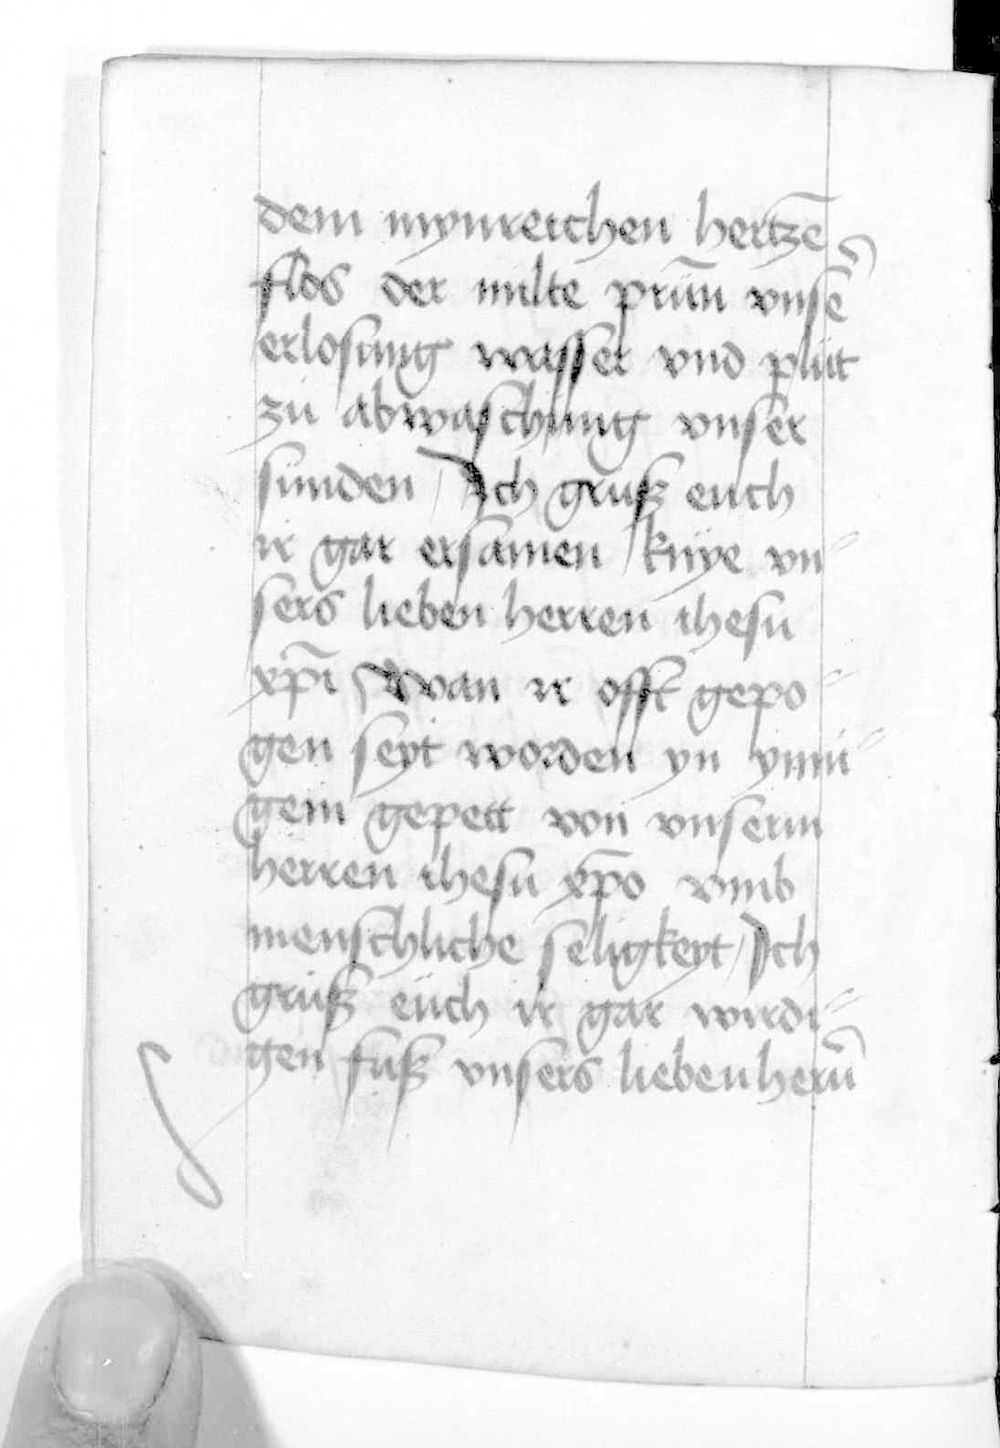 dem mynreichen hertzē
flos der milte prūn vnsē
erlosung wasser vnd plut
zu abwaschung vnser
sunden Ich gruß euch
ir gar ersamen knye vn
sers lieben herren ihesu
xp̄i Wan ir offt gepo
gen seyt worden yn ynni
gem gepett von vnserm
herren ihesu xp̄o vmb
menschliche seligkeyt Ich
gruß euch ir gar wirdi
gen fuß vnsers lieben herū